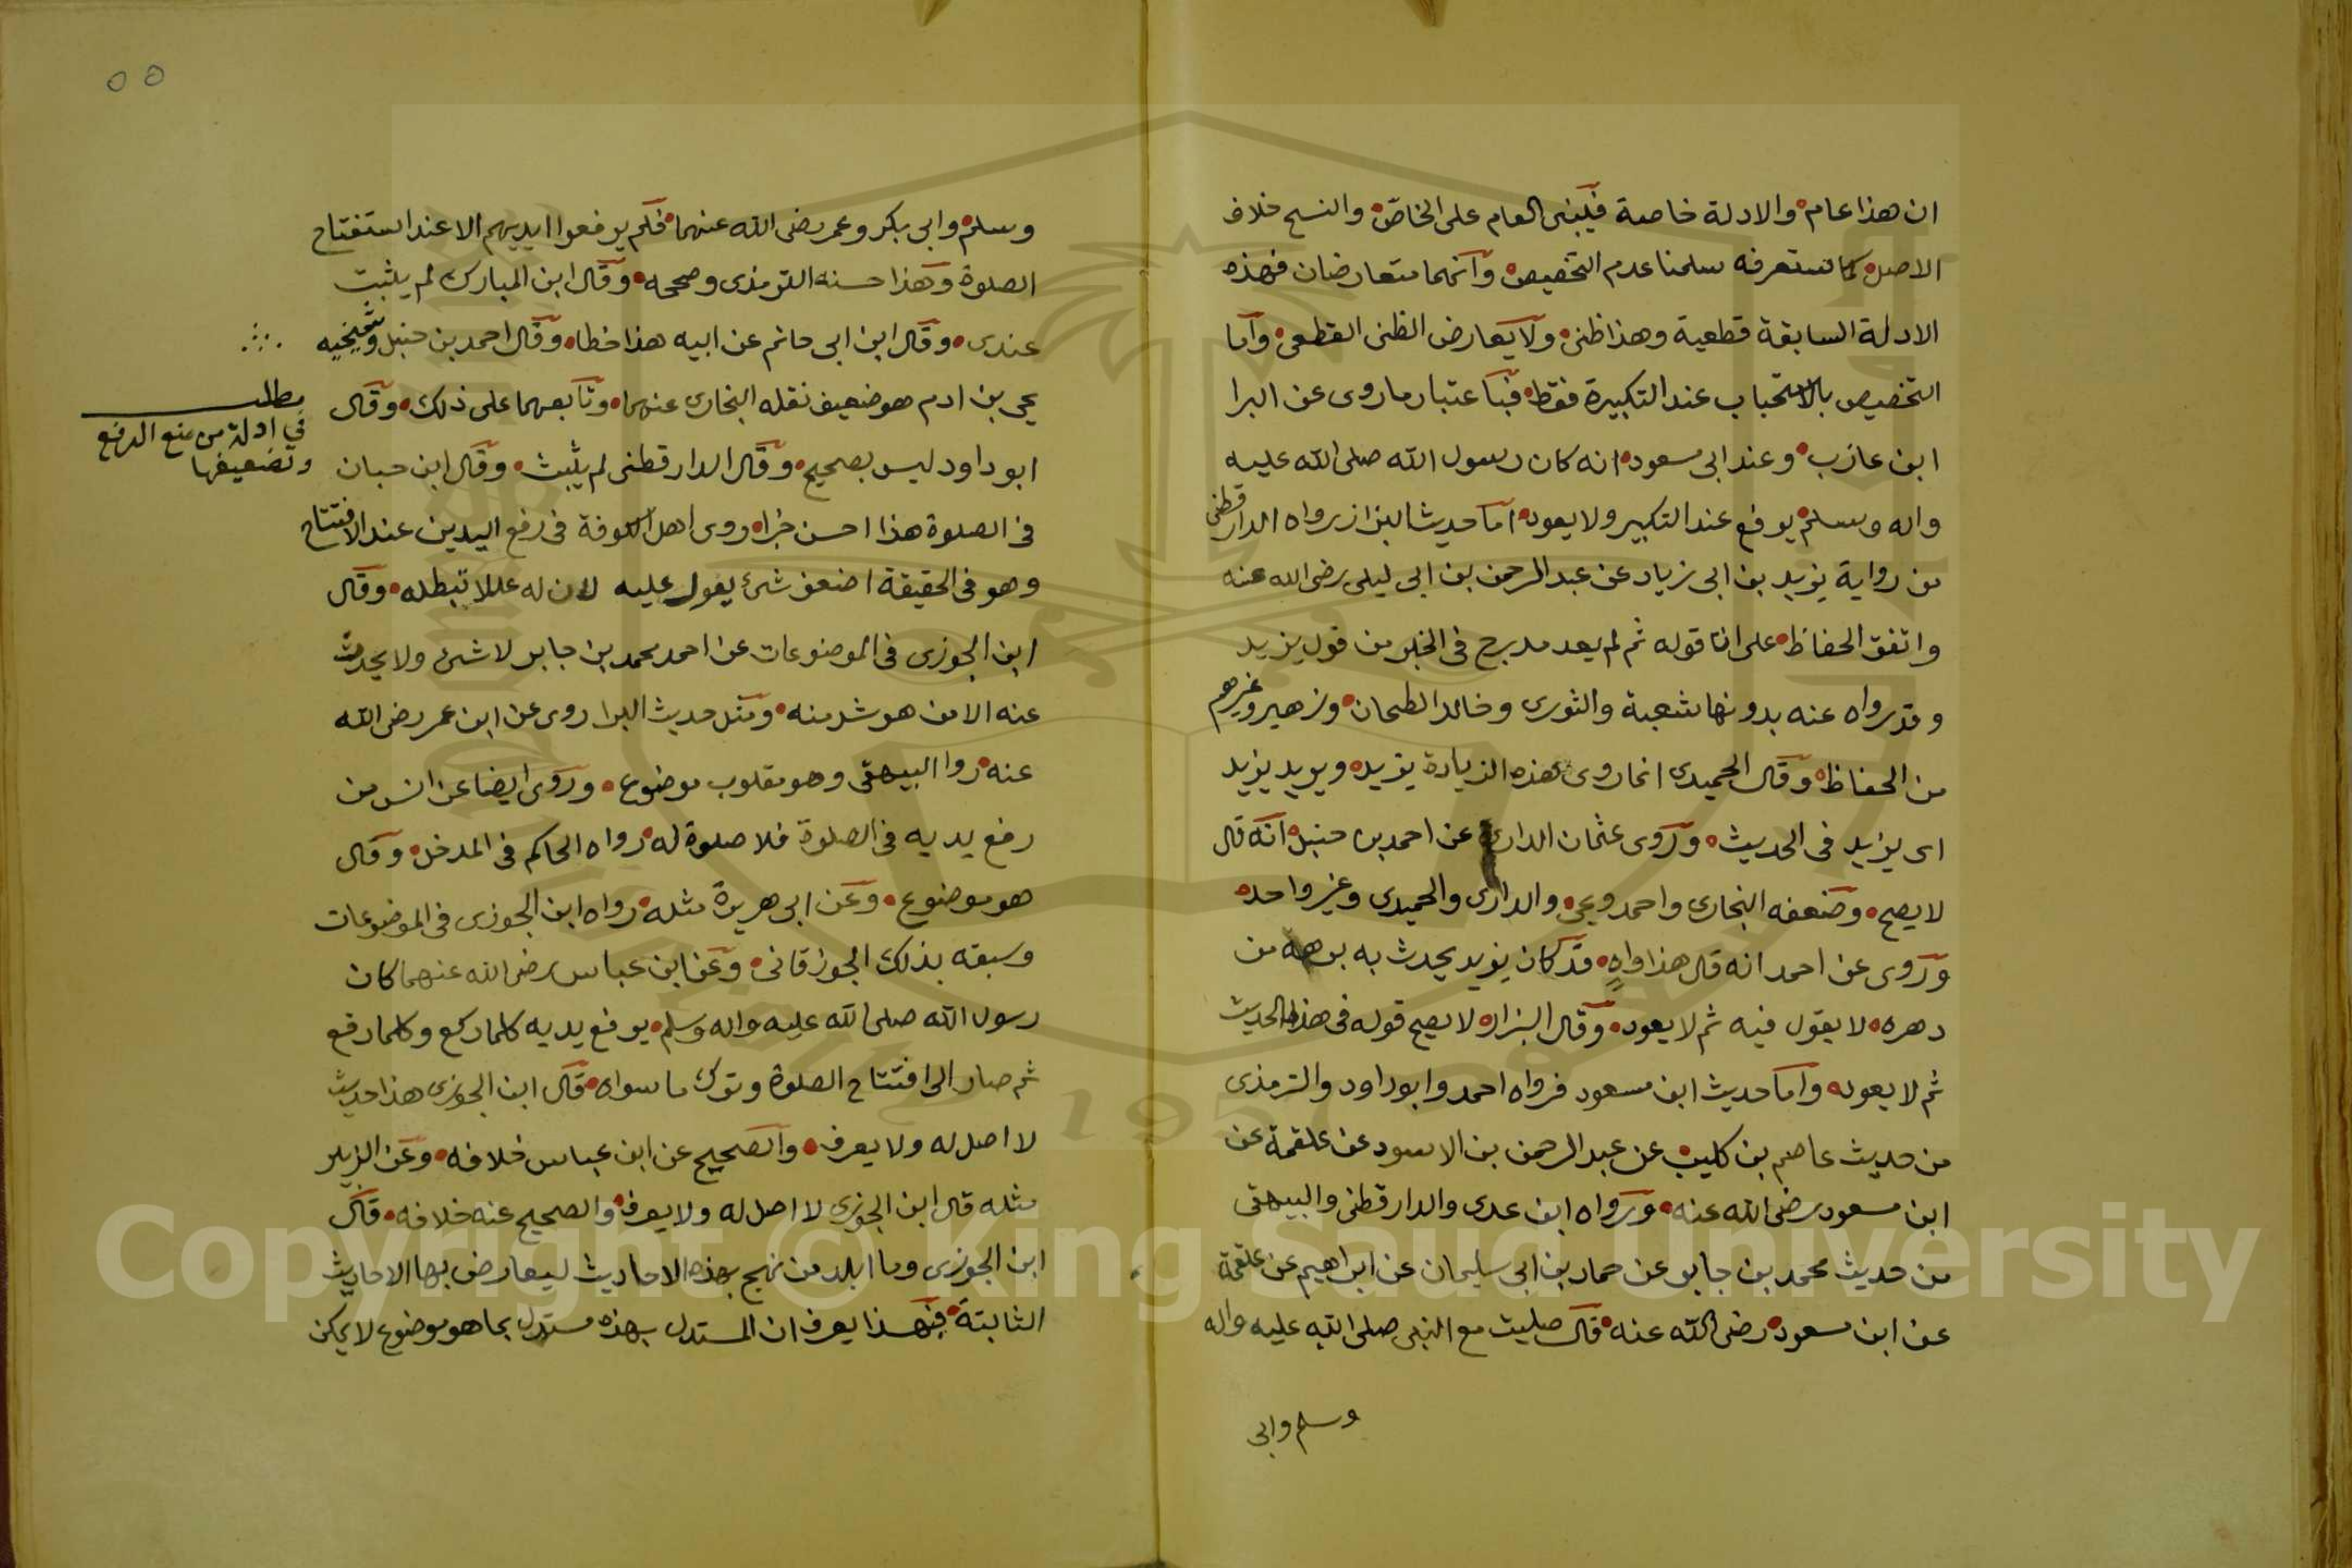 ان هذا عام والادلة خاصة فيبنى العام على الخاص والنسخ خلاف
الاصل كما ستعرفه سلمنا عدم التخصيص وانهما متعارضان فهذه
الادلة السابقة قطعية وهذا ظنى ولا يعارض الظنى القطعى واما
التخصيص بالاستحباب عند التكبيرة فقط فباعتبار ما روى عن البرا
ابن عازب وعند ابى مسعود انه كان رسول الله صلى الله عليه
واله وسلم يرفع عند التكبير ولا يعود اما حديث البزاز رواه الدارقطنى
من رواية يزيد بن ابى زياد عن عبد الرحمن بن ابى ليلى رضى الله عنه
واتفق الحفاظ على ان قوله ثم لم يعد مدرج فى الخبر من قول يزيد
وقد رواه عنه بدونها شعبة والثورى وخالد الطحان وزهير وغيرهم
من الحفاظ وقال الحميدى انما روى هذه الزيادة يزيد ويريد يزيد
اى يزيد فى الحديث وروى عثمان الدارى عن احمد بن حنبل انه قال
لا يصح وضعفه البخارى واحمد ويحى والدارى والحميدى وغير واحد
وروى عن احمد انه قال هذا واهٍ قد كان يزيد يحدث به برهة من
دهره لا يقول فيه ثم لا يعود وقال البزار لا يصح قوله فى هذا الحديث
ثم لا يعود واما حديث ابن مسعود فرواه احمد وابو داود والترمذى
من حديث عاصم بن كليب عن عبد الرحمن بن الاسود عن علقمة عن
ابن مسعود رضى الله عنه ورواه ابن عدى والدارقطنى والبيهقى
من حديث محمد بن جابر عن حماد بن ابى سليمان عن ابراهيم عن علقمة
عن ابن مسعود رضى الله عنه قال صليت مع النبى صلى الله عليه واله
وسلم وابى
٥٥
وسلم وابى بكر وعمر رضى الله عنهما فلم يرفعوا ايديهم الا عند استفتاح
الصلوة وهذا حسنه الترمذى وصححه وقال ابن المبارك لم يثبت
عندى وقال ابن ابى حاتم عن ابيه هذا خطا وقال احمد بن حنبل وشيخيه
يحى بن ادم هو ضعيف نقله البخارى عنهما وتابعهما على ذلك وقال
ابو داود ليس بصحيح وقال الدارقطنى لم يثبت وقال ابن حبان
فى الصلوة هذا احسن خبر روى اهل الكوفة فى رفع اليدين عند الافتتاح
وهو فى الحقيقة اضعف شىء يعول عليه لان له عللا تبطله وقال
ابن الجوزى فى الموضوعات عن احمد محمد بن جابر لا شىء ولا يحدث
عنه الا من هو شر منه ومثل حديث البرا روى عن ابن عمر رضى الله
عنه روا البيهقى وهو مقلوب موضوع وروى ايضا عن انس من
رفع يديه فى الصلوة فلا صلوة له رواه الحاكم فى المدخل وقال
هو موضوع وعن ابى هريرة مثله رواه ابن الجوزى فى الموضوعات
وسبقه بذلك الجوزقانى وعن ابن عباس رضى الله عنهما كان
رسول الله صلى الله عليه واله وسلم يرفع يديه كلما ركع وكلما رفع
ثم صار الى افتتاح الصلوة وترك ما سواه قال ابن الجوزى هذا حديث
لا اصل له ولا يعرف والصحيح عن ابن عباس خلافه وعن الزبير
مثله قال ابن الجوزى لا اصل له ولا يعرف والصحيح عنه خلافه قال
ابن الجوزى وما ابلد من نهج بهذه الاحاديث ليعارض بها الاحاديث
الثابتة فبهذا يعرف ان المستدل بهذه مستدل بما هو موضوع لا يمكن
مطلب
فى ادلة من منع الرفع
وتضعيفها
Copyright © King Saud University